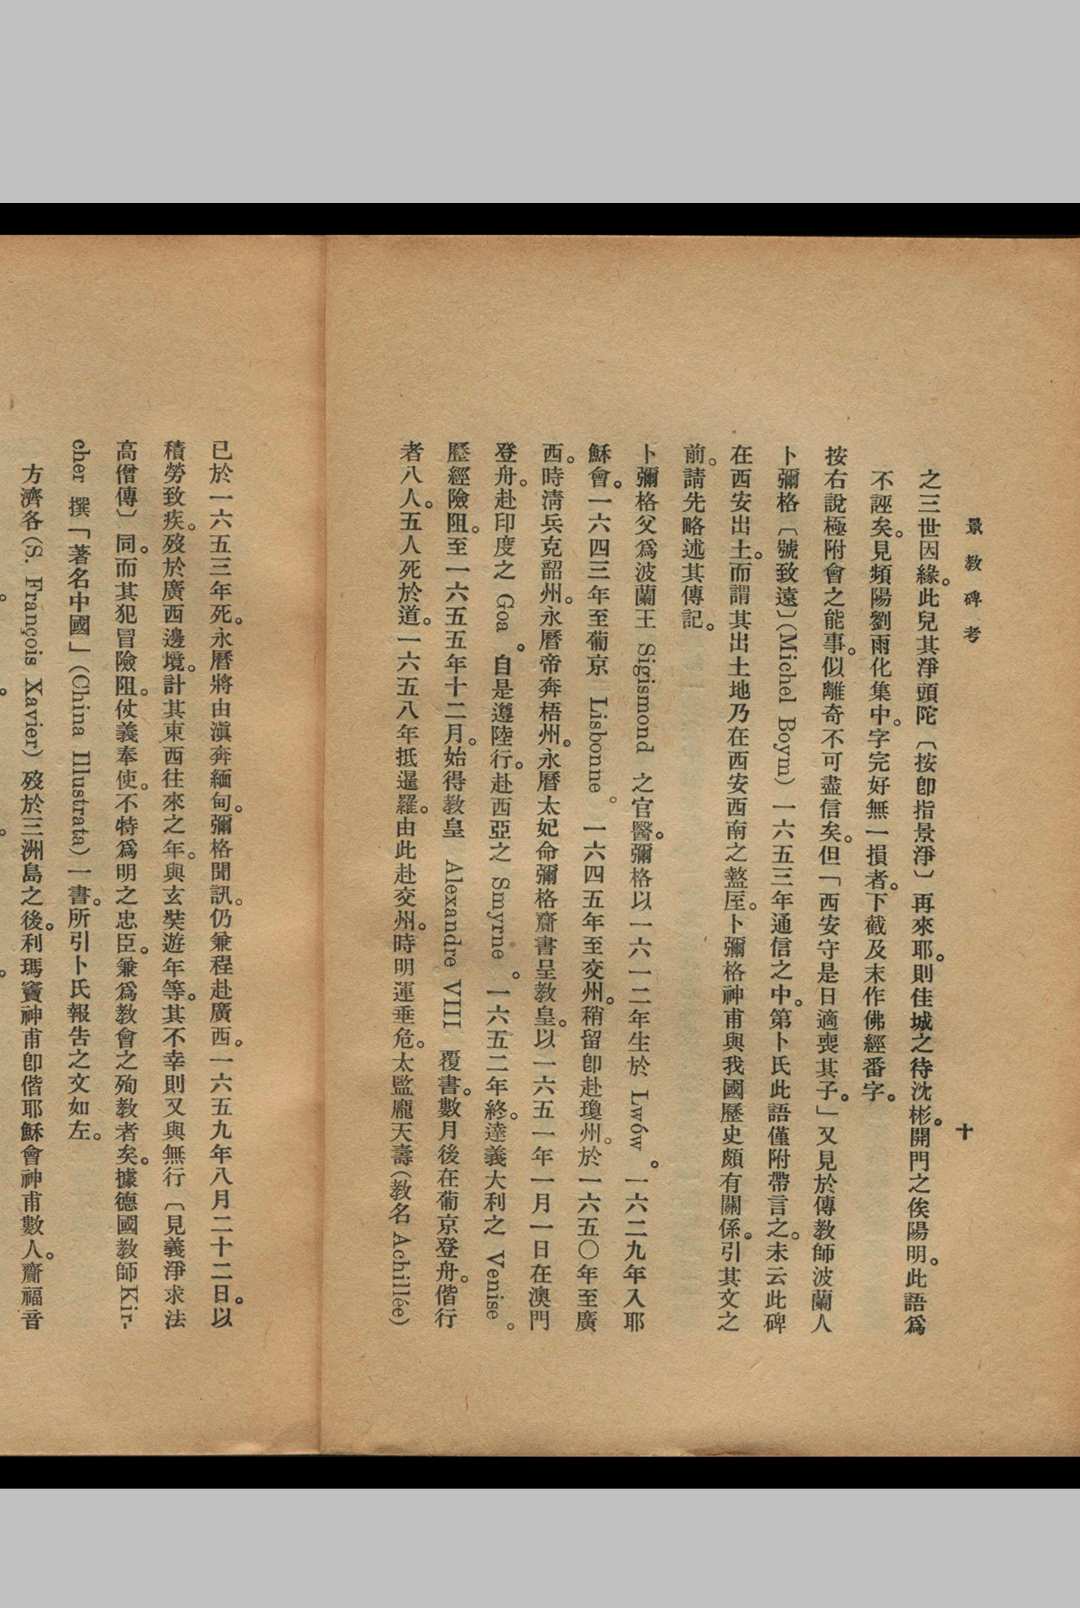 景教碑考
十
之三世因緣。此兒其淨頭陀〔按卽指景淨〕再來耶。則佳城之待沈彬。開門之俟陽明。此語爲
不誣矣。見頻陽劉雨化集中。字完好無一損者。下截及末作佛經番字。
按右說極附會之能事。似離奇不可盡信矣。但「西安守是日適喪其子。」又見於傳教師波蘭人
卜彌格〔號致遠〕(Michel Boym)一六五三年通信之中。第卜氏此語僅附帶言之。未云此碑
在西安出土。而謂其出土地乃在西安西南之盩厔。卜彌格神甫與我國歷史頗有關係。引其文之
前。請先略述其傳記。
卜彌格父爲波蘭王 Sigismond 之官醫。彌格以一六一二年生於 Lwów。一六二九年入耶
穌會。一六四三年至葡京 Lisbonne。一六四五年至交州。稍留卽赴瓊州。於一六五〇年至廣
西。時淸兵克韶州。永曆帝奔梧州。永曆太妃命彌格齎書呈教皇。以一六五一年一月一日在澳門
登舟。赴印度之 Goa。自是遵陸行。赴西亞之 Smyrne。一六五二年終。達義大利之 Venise。
歷經險阻。至一六五五年十二月。始得教皇 Alexandre VIII 覆書。數月後在葡京登舟。偕行
者八人。五人死於道。一六五八年抵暹羅。由此赴交州。時明運垂危。太監龐天壽(教名 Achillée)
已於一六五三年死。永曆將由滇奔緬甸。彌格聞訊。仍兼程赴廣西。一六五九年八月二十二日。以
積勞致疾。歿於廣西邊境。計其東西往來之年。與玄奘遊年等。其不幸則又與無行〔見義淨求法
高僧傳〕同。而其犯冒險阻。仗義奉使。不特爲明之忠臣。兼爲教會之殉教者矣。據德國教師Kir-
cher 撰「著名中國」(China Illustrata)一書。所引卜氏報告之文如左。
方濟各(S. François Xavier)歿於三洲島之後。利瑪竇神甫卽偕耶穌會神甫數人。齎福音